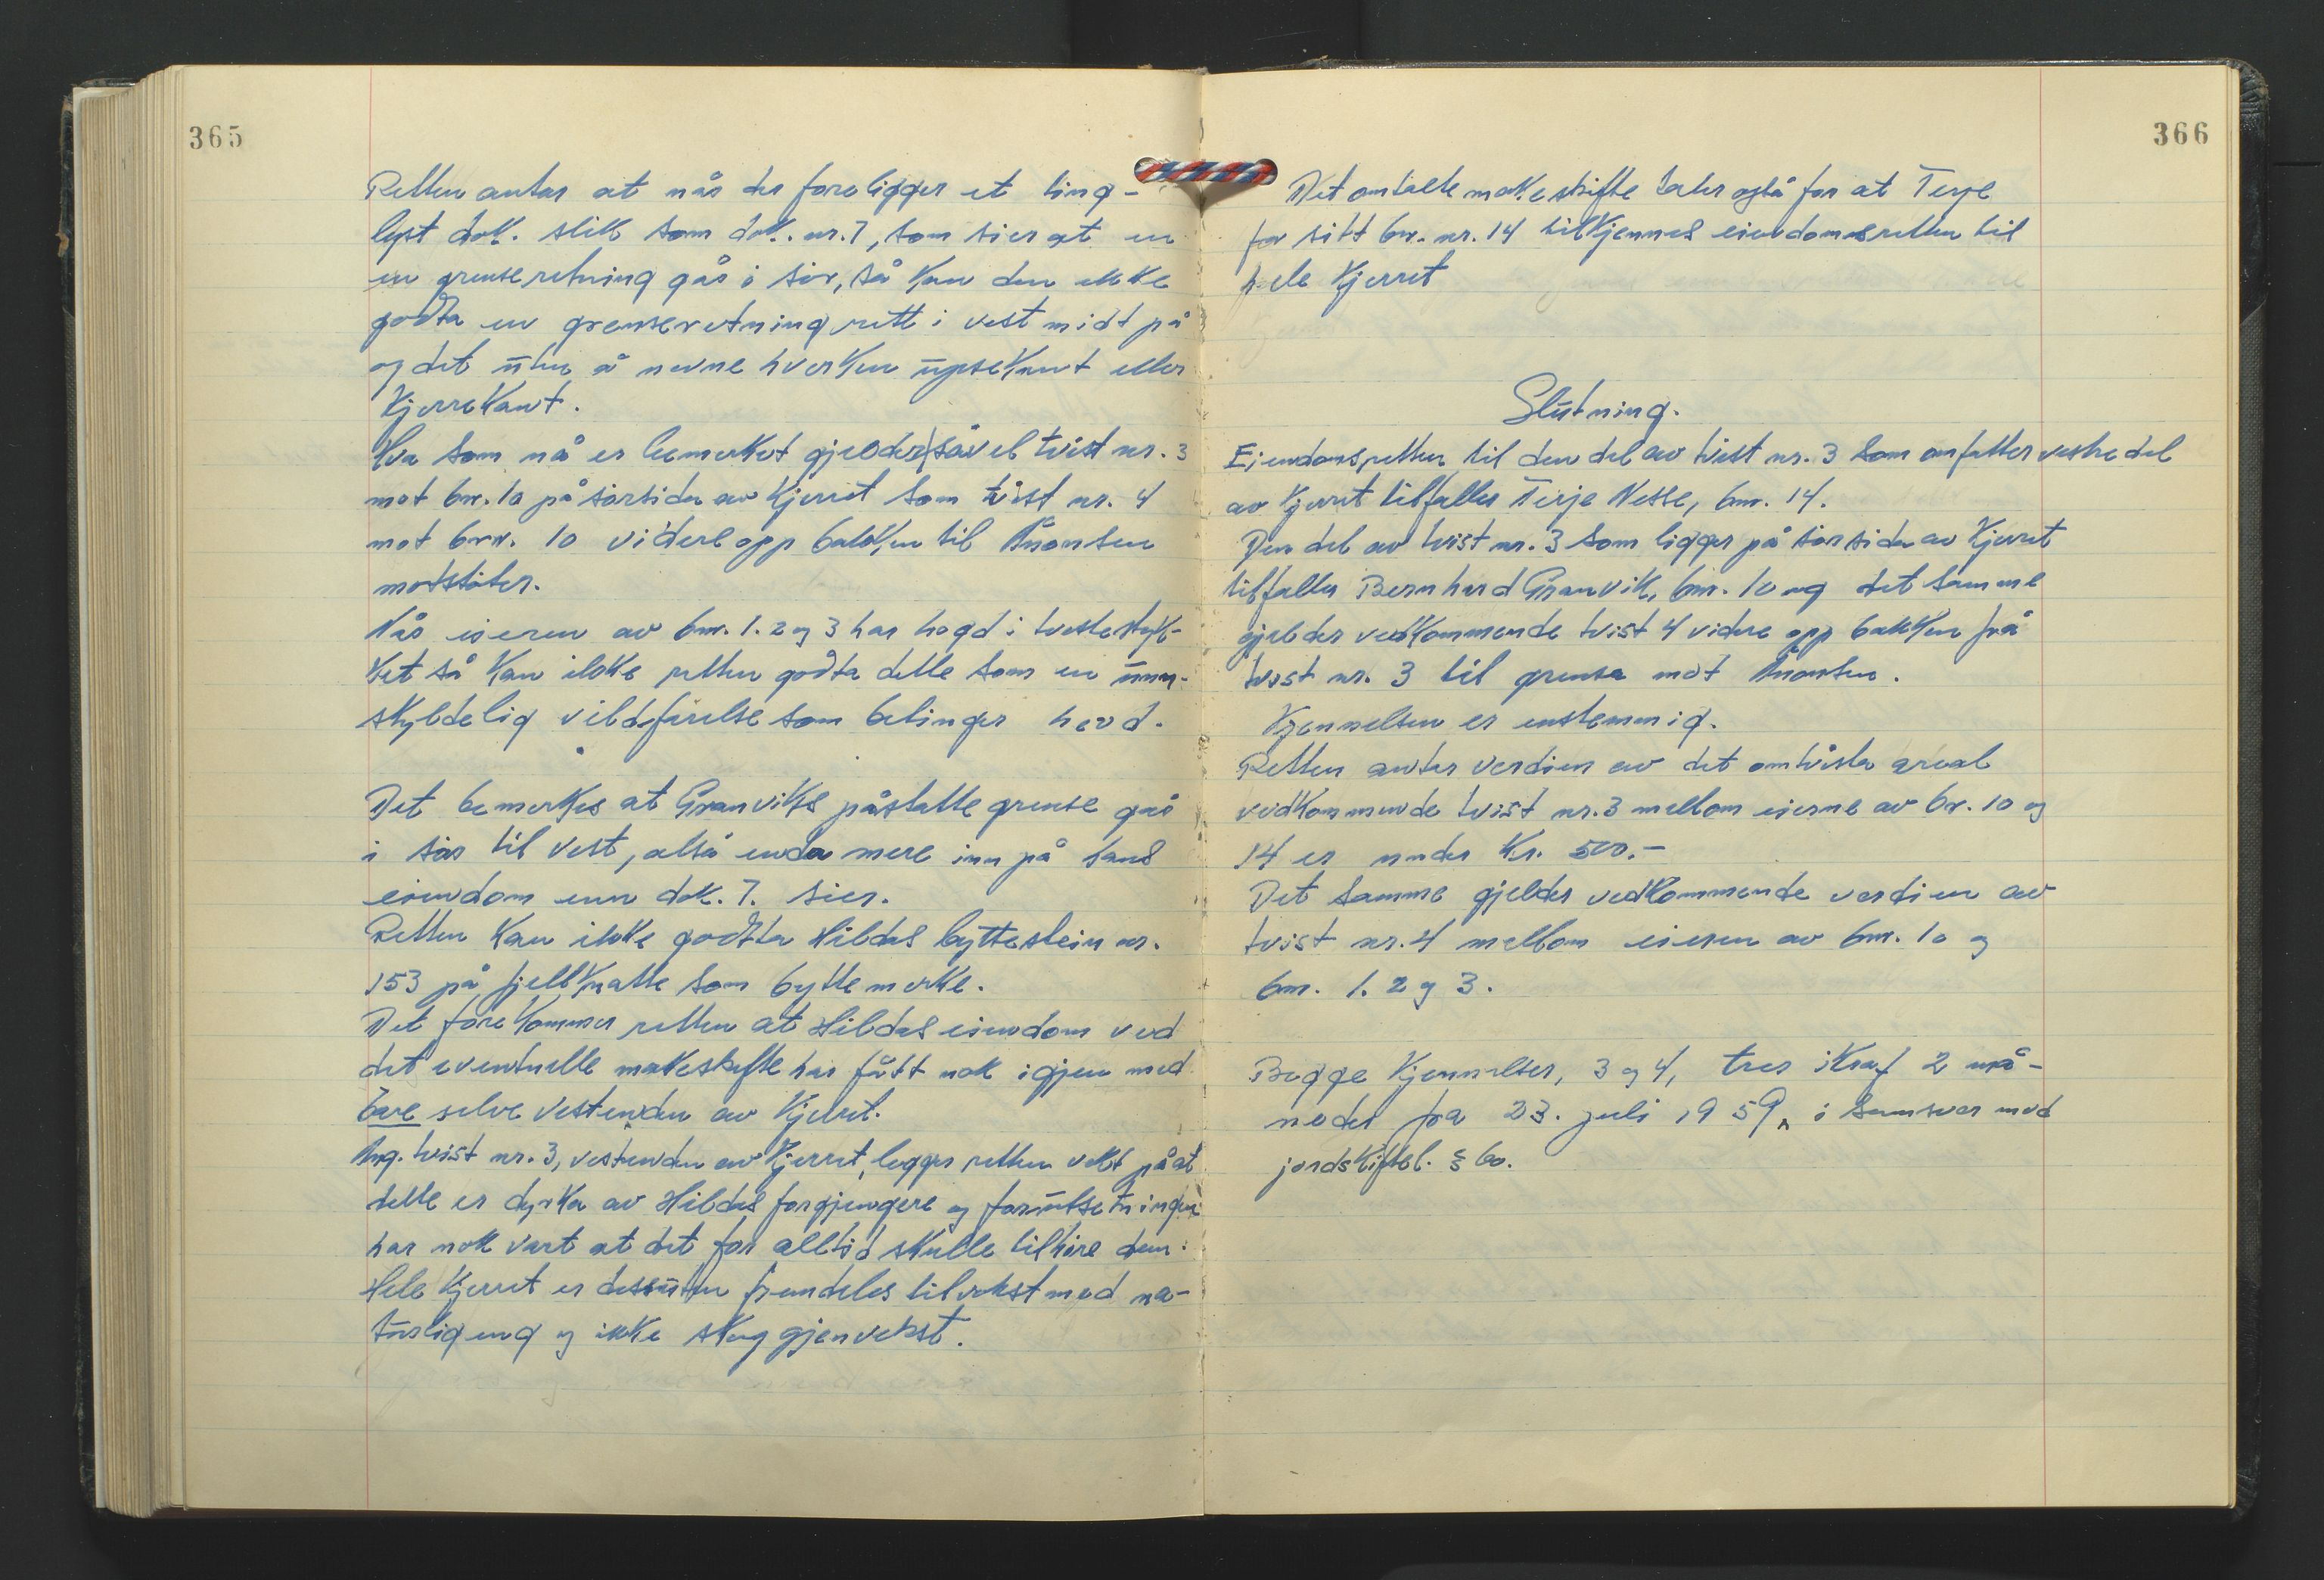 365
Retten antar at når der foreligger et ting-
lyst dok. slik som dok. nr. 7, som sier at en
en grenseretning går i sør, så kan den ikke
godta en grenseretning rett i vest midt på
og det uten å nevne hverken upsekant eller
Kjerrekant.
Hva som nå er bemerket gjelder såvel tvist nr. 3
mot bnr. 10 på sørsida av Kjerret som tvist nr. 4
mot bnr. 10 videre opp bakken til Ånonsen
motstøter.
Når eieren av bnr. 1. 2 og 3 har hogd i tvistestyk-
ket så kan ikke retten godta dette som en unn-
skyldelig villdfarelse som betinger hevd.
Det bemerkes at Granviks påstatte grense går
i sør til vest, altså enda mere inn på hans
eiendom enn dok. 7. sier.
Retten kan ikke godta Hildas byttestein nr.
153 på fjellknatte som byttemerke.
Det forekommer retten at Hildas eiendom ved
det eventuelle makeskifte har fått nok igjen med
bare selve vestenden av Kjerret.
Ang. tvist nr. 3, vestenden av Kjerret, legger retten vekt på at
dette er dyrka av Hildas forgjengere og forutsetningen
har nok vært at det for alltid skulle tilhøre dem.
Hele Kjerret er dessuten fremdeles tilvokst med na-
turlig eng og ikke skog gjenvekst.
366
Det omtalte makeskifte taler også for at Terje
for sitt bnr. nr. 14 tilkjennes eiendomsretten til
hele Kjerret
Slutning.
Eiendomsretten til den del av tvist nr. 3 som omfatter vestre del
av Kjerret tilfaller Terje Nesse, bnr. 14.
Den del av tvist nr. 3 som ligger på sørsida av Kjerret
tilfaller Bernhard Granvik, bnr. 10 og det samme
gjelder vedkommende tvist 4 videre opp bakken frå
tvist nr. 3 til grensa mot Ånonsen.
Kjennelsen er enstemmig.
Retten antar verdien av det omtvista areal
vedkommende tvist nr. 3 mellom eierne av br. 10 og
14 er under kr. 500.-
Det samme gjelder vedkommende verdien av
tvist nr. 4 mellom eieren av bnr. 10 og
bnr. 1. 2 og 3.
Begge Kjennelser, 3 og 4, tres i kraf 2 må-
neder fra 23. juli 1959, i samsvar med
jordskiftel. § 60.